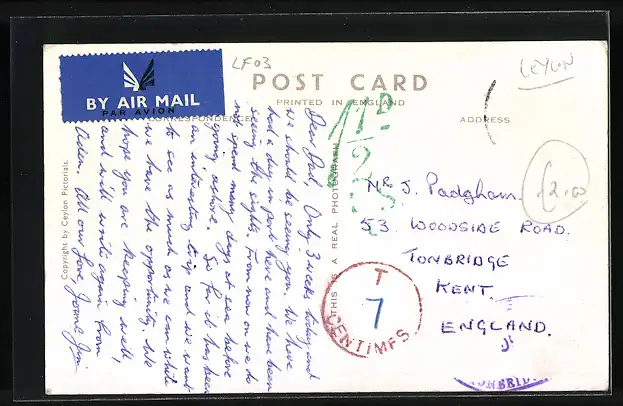 LF03
CEYLON
BY AIR MAIL
PAR AVION
POST CARD
PRINTED IN ENGLAND
CORRESPONDENCE
ADDRESS
Copyright by Ceylon Pictorials.
THIS IS A REAL PHOTOGRAPH
Dear Dad, Only 3 weeks today and
we should be seeing you. We have
had a day in port here and have been
seeing the sights. From now on we do
not spend many days at sea before
going ashore. So far it has been
an interesting trip and we want
to see as much as we can while
we have the opportunity. We
hope you are keeping well,
and will write again from
Aden. All our love, Joan &
1D
2
Mr J. Padgham.
53 WOODSIDE ROAD.
TONBRIDGE
KENT.
ENGLAND.
£2.00
T
7
CENTIMES
TONBRID